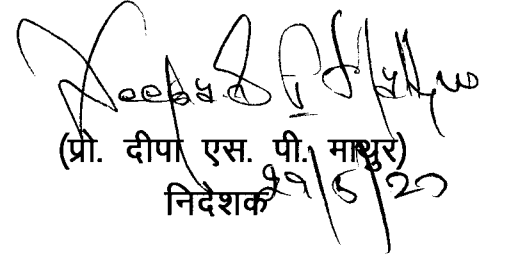 (प्रो. दीपा एस. पी. माथुर)
निदेशक 29/5/20